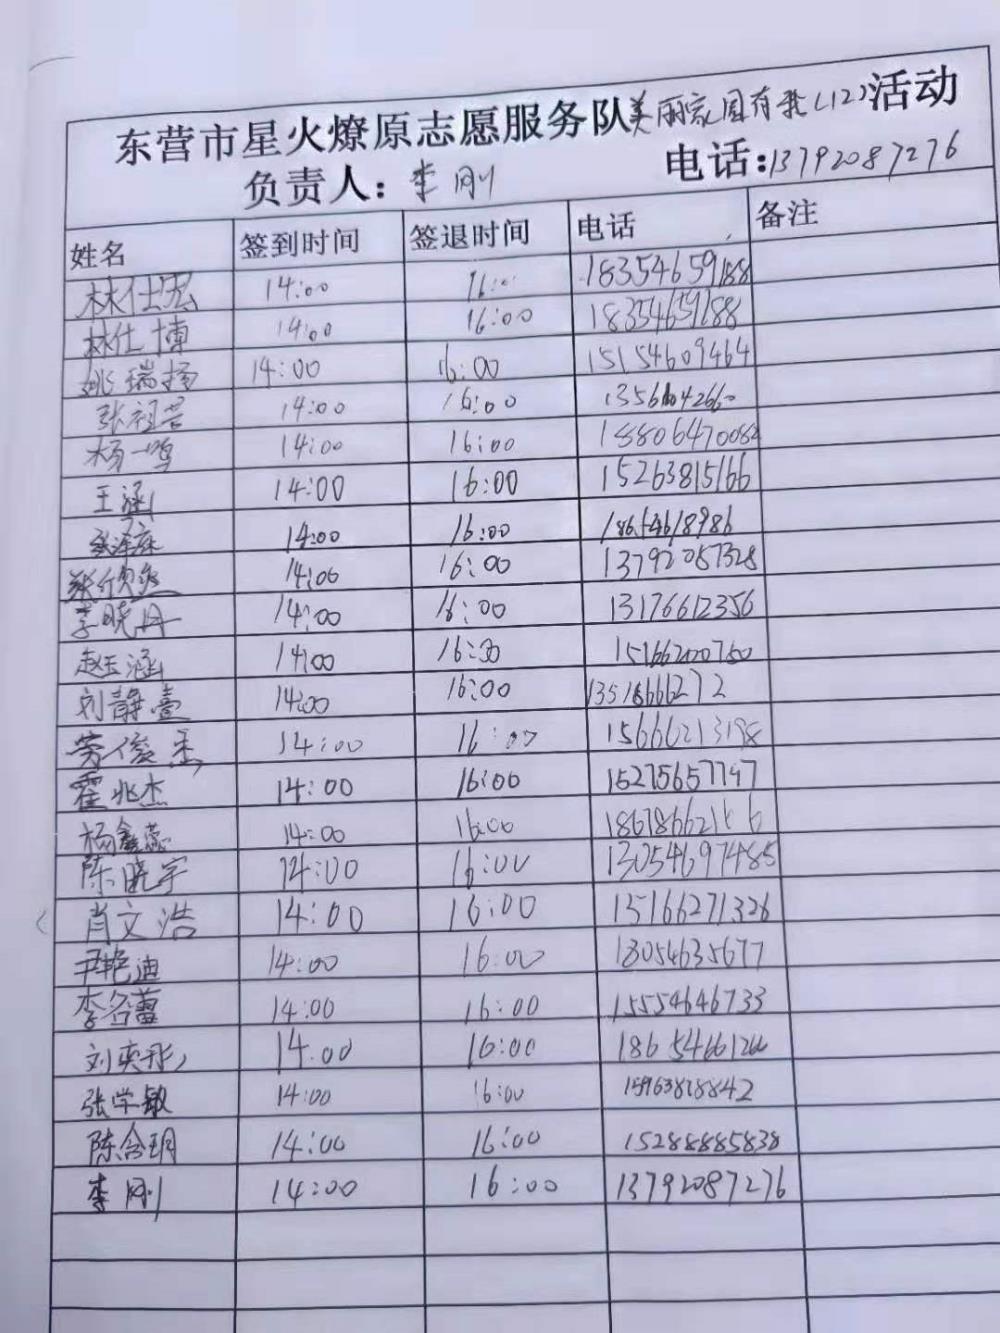 东营市星火燎原志愿服务队美丽家园有我(12)活动
负责人：李刚 电话:13792087276
姓名 签到时间 签退时间 电话 备注
林仕宏 14:00 16:00 18354659188
林仕博 14:00 16:00 18354659188
姚瑞扬 14:00 16:00 15154609464
张祖营 14:00 16:00
杨一鸣 14:00 16:00 18806470082
王涵 14:00 16:00 15263815166
14:00 16:00 18654618986
张欣然 14:00 16:00 13792087328
李晓丹 14:00 16:00 13176612356
赵玉涵 14:00 16:30 15166200750
刘静萱 14:00 16:00 13518666272
俊杰 14:00 16:00 15666213198
霍兆杰 14:00 16:00 15275657797
杨鑫蕊 14:00 16:00
陈晓宇 14:00 16:00 13054697485
肖文浩 14:00 16:00 15166271326
尹艳迪 14:00 16:00 18054635677
李名蕾 14:00 16:00 15554646733
刘奕彤 14:00 16:00 18654661266
张学敏 14:00 16:00 15963828842
陈含玥 14:00 16:00 15288885838
李刚 14:00 16:00 13792087276